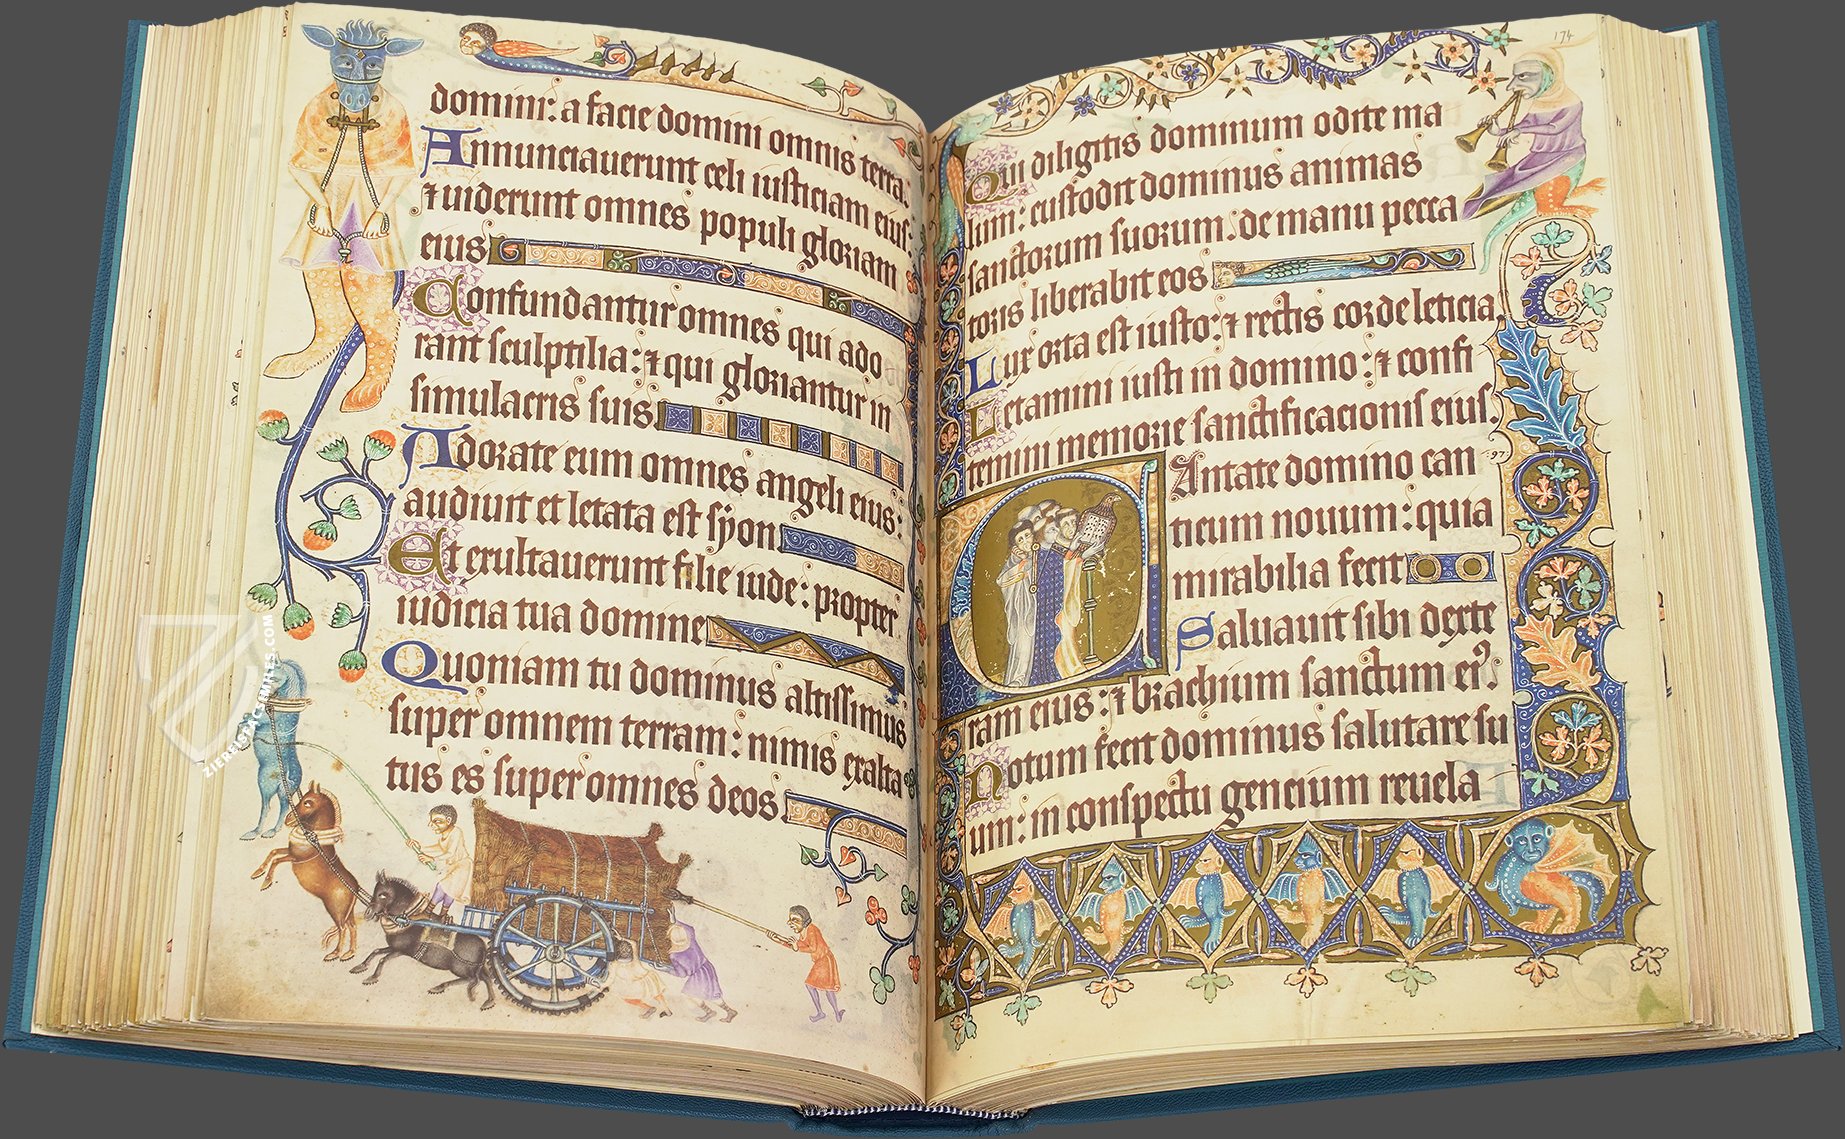 domini: a facie domini omnis terra.
Annunciauerunt celi iusticiam eius:
⁊ uiderunt omnes populi gloriam
eius
Confundantur omnes qui ado
rant sculptilia: ⁊ qui gloriantur in
simulacris suis.
Adorate eum omnes angeli eius:
audiuit et letata est syon
Et exultauerunt filie iude: propter
iudicia tua domine
Quoniam tu dominus altissimus
super omnem terram: nimis exalta
tus es super omnes deos
ZIEREIS FACSIMILES.COM
174
Qui diligitis dominum odite ma
lum: custodit dominus animas
sanctorum suorum: de manu pecca
toris liberabit eos
Lux orta est iusto: ⁊ rectis corde leticia.
Letamini iusti in domino: ⁊ confi
temini memorie sanctificacionis eius.
Cantate domino can :97:
ticum nouum: quia
mirabilia fecit
Saluauit sibi dexte
ram eius: ⁊ brachium sanctum ei⁹.
Notum fecit dominus salutare su
um: in conspectu gencium reuela